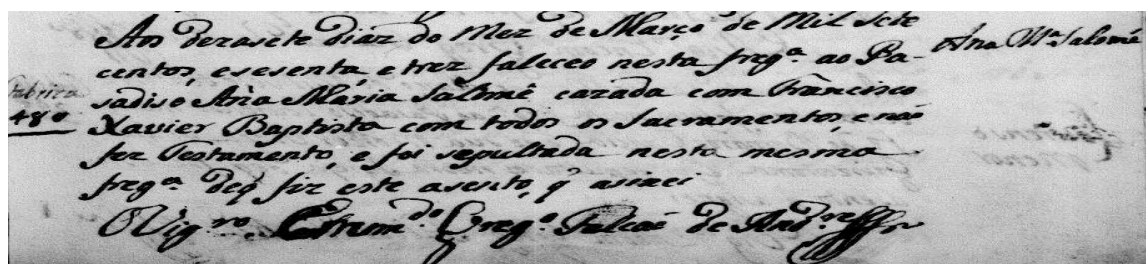 Aos dezasete diaz do Mez de Março de Mil sete
centos, e sesenta, e trez faleceo nesta freg.ª ao Pa-
sadiso Ana Maria Salomé cazada com Francisco
Xavier Baptista com todos os Sacramentos, e naõ
fez Testamento, e foi sepultada nesta mesma
freg.ª deq̃ fiz este asento, q̃ asinei
O Vig.ro Falcaõ de And.re
Ana M.ª Salomé
Fabrica
480